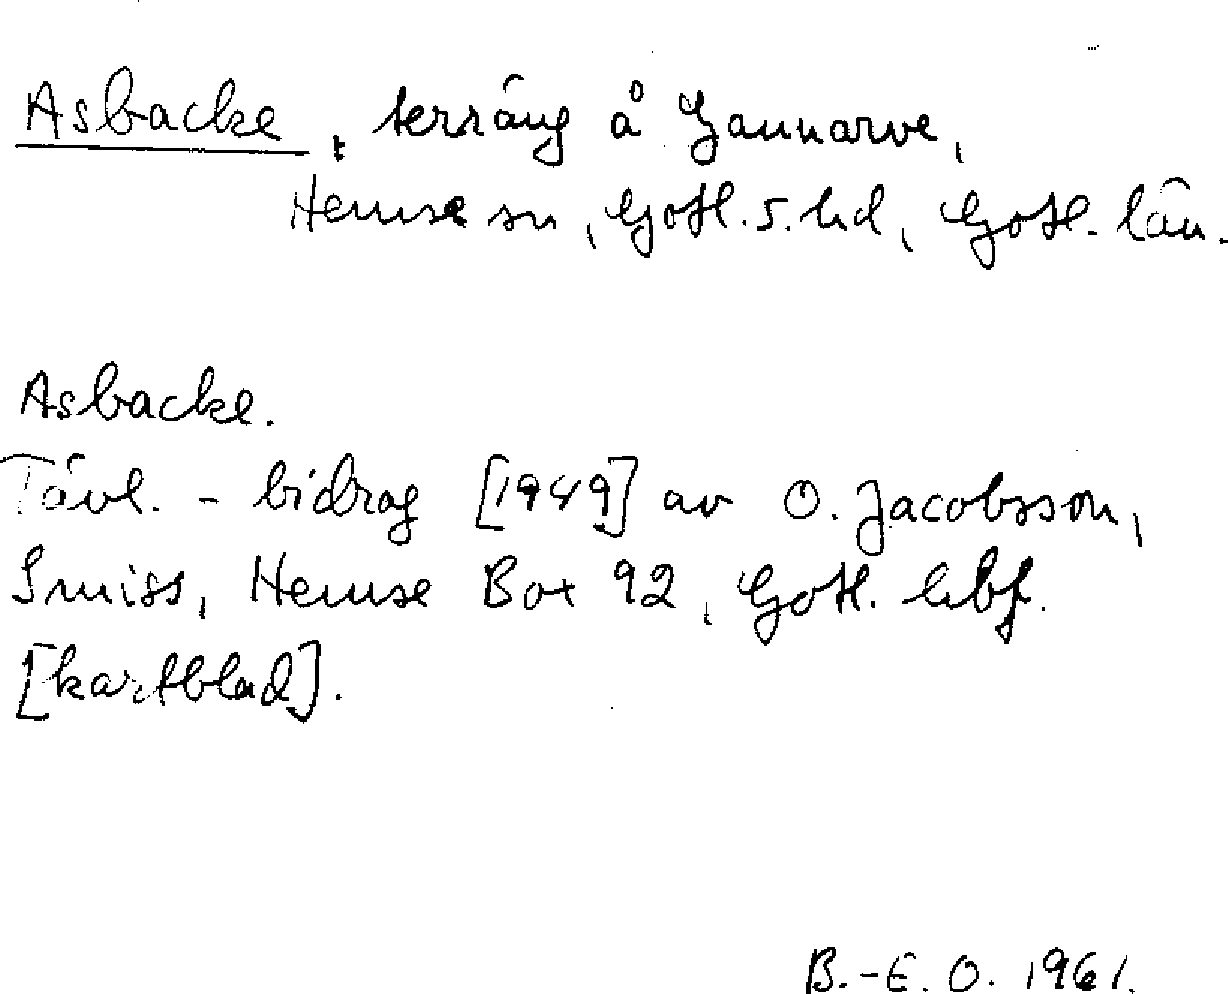 Asbacke, terräng å Gannarve,
Hemse sn, Gotl. s. hd, Gotl. län.
Asbacke.
Tävl. - bidrag [1949] av O. Jacobsson,
Smiss, Hemse Box 92, Gotl. hbf.
[kartblad].
B.-E. O. 1961.